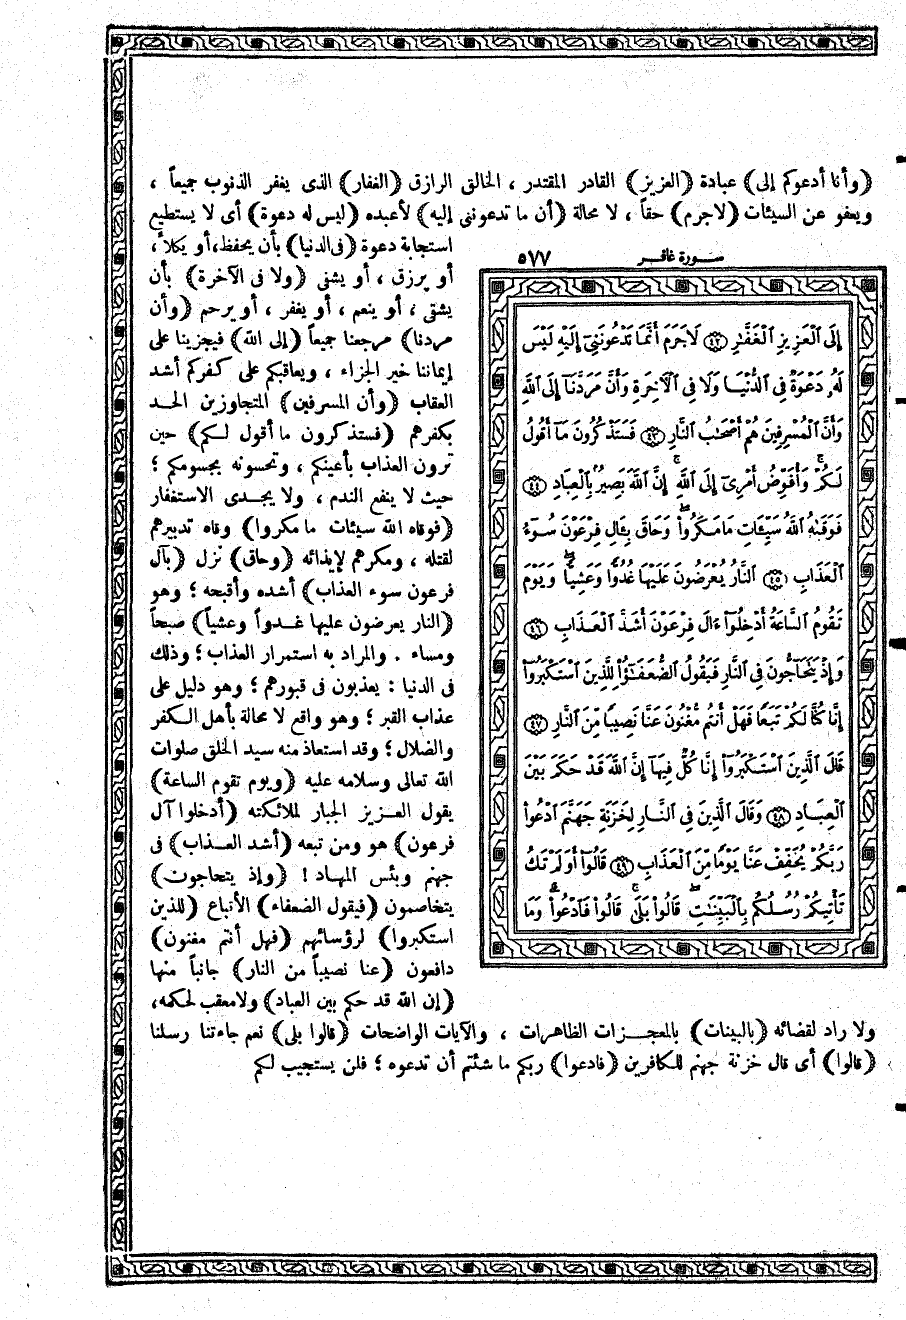 (وأنا أدعوكم إلى) عبادة (العزيز) القادر المقتدر ، الخالق الرازق (الغفار) الذى يغفر الذنوب جميعاً ،
ويعفو عن السيئات (لاجرم) حقاً ، لا محالة (أن ما تدعوننى إليه) لأعبده (ليس له دعوة) أى لا يستطيع
استجابة دعوة (فى الدنيا) بأن يحفظ، أو يكلأ ،
أو يرزق ، أو يشنى (ولا فى الآخرة) بأن
يشقى ، أو ينعم ، أو يغفر ، أو يرحم (وأن
مردنا) مرجعنا جميعاً (إلى الله) فيجزينا على
إيماننا خير الجزاء ، ويعاقبكم على كفركم أشد
العقاب (وأن المسرفين) المتجاوزين الحد
بكفرهم (فستذكرون ما أقول لكم) حين
ترون العذاب بأعينكم ، وتحسونه بجسومكم ؛
حيث لا ينفع الندم ، ولا يجدى الاستغفار
(فوقاه الله سيئات ما مكروا) وقاه تدبيرهم
لقتله ، ومكرهم لإيذائه (وحاق) نزل (بآل
فرعون سوء العذاب) أشده وأقبحه ؛ وهو
(النار يعرضون عليها غدواً وعشياً) صبحاً
ومساء . والمراد به استمرار العذاب ؛ وذلك
فى الدنيا : يعذبون فى قبورهم ؛ وهو دليل على
عذاب القبر ؛ وهو واقع لا محالة بأهل الكفر
والضلال ؛ وقد استعاذ منه سيد الخلق صلوات
الله تعالى وسلامه عليه (ويوم تقوم الساعة)
يقول العزيز الجبار لملائكته (أدخلوا آل
فرعون) هو ومن تبعه (أشد العذاب) فى
جهنم وبئس المهاد ! (وإذ يتحاجون)
يتخاصمون (فيقول الضعفاء) الأتباع (للذين
استكبروا) لرؤسائهم (فهل أنتم مغنون)
دافعون (عنا نصيباً من النار) جانباً منها
(إن الله قد حكم بين العباد) ولامعقب لحكمه،
ولا راد لقضائه (بالبينات) بالمعجزات الظاهرات ، والآيات الواضحات (قالوا بلى) نعم جاءتنا رسلنا
(قالوا) أى قال خزنة جهنم للكافرين (فادعوا) ربكم ما شئتم أن تدعوه ؛ فلن يستجيب لكم
سورة غافر ٥٧٧
إِلَى ٱلْعَزِيزِ ٱلْغَفَّٰرِ ﴿٤٢﴾ لَاجَرَمَ أَنَّمَا تَدْعُونَنِىٓ إِلَيْهِ لَيْسَ
لَهُۥ دَعْوَةٌ فِى ٱلدُّنْيَا وَلَا فِى ٱلْأٓخِرَةِ وَأَنَّ مَرَدَّنَآ إِلَى ٱللَّهِ
وَأَنَّ ٱلْمُسْرِفِينَ هُمْ أَصْحَٰبُ ٱلنَّارِ ﴿٤٣﴾ فَسَتَذْكُرُونَ مَآ أَقُولُ
لَكُمْ ۚ وَأُفَوِّضُ أَمْرِىٓ إِلَى ٱللَّهِ ۚ إِنَّ ٱللَّهَ بَصِيرٌۢ بِٱلْعِبَادِ ﴿٤٤﴾
فَوَقَىٰهُ ٱللَّهُ سَيِّـَٔاتِ مَا مَكَرُوا۟ ۖ وَحَاقَ بِـَٔالِ فِرْعَوْنَ سُوٓءُ
ٱلْعَذَابِ ﴿٤٥﴾ ٱلنَّارُ يُعْرَضُونَ عَلَيْهَا غُدُوًّا وَعَشِيًّا ۖ وَيَوْمَ
تَقُومُ ٱلسَّاعَةُ أَدْخِلُوٓا۟ ءَالَ فِرْعَوْنَ أَشَدَّ ٱلْعَذَابِ ﴿٤٦﴾
وَإِذْ يَتَحَآجُّونَ فِى ٱلنَّارِ فَيَقُولُ ٱلضُّعَفَٰٓؤُا۟ لِلَّذِينَ ٱسْتَكْبَرُوٓا۟
إِنَّا كُنَّا لَكُمْ تَبَعًا فَهَلْ أَنتُم مُّغْنُونَ عَنَّا نَصِيبًا مِّنَ ٱلنَّارِ ﴿٤٧﴾
قَالَ ٱلَّذِينَ ٱسْتَكْبَرُوٓا۟ إِنَّا كُلٌّ فِيهَآ إِنَّ ٱللَّهَ قَدْ حَكَمَ بَيْنَ
ٱلْعِبَادِ ﴿٤٨﴾ وَقَالَ ٱلَّذِينَ فِى ٱلنَّارِ لِخَزَنَةِ جَهَنَّمَ ٱدْعُوا۟
رَبَّكُمْ يُخَفِّفْ عَنَّا يَوْمًا مِّنَ ٱلْعَذَابِ ﴿٤٩﴾ قَالُوٓا۟ أَوَلَمْ تَكُ
تَأْتِيكُمْ رُسُلُكُم بِٱلْبَيِّنَٰتِ ۖ قَالُوا۟ بَلَىٰ ۚ قَالُوا۟ فَٱدْعُوا۟ ۗ وَمَا